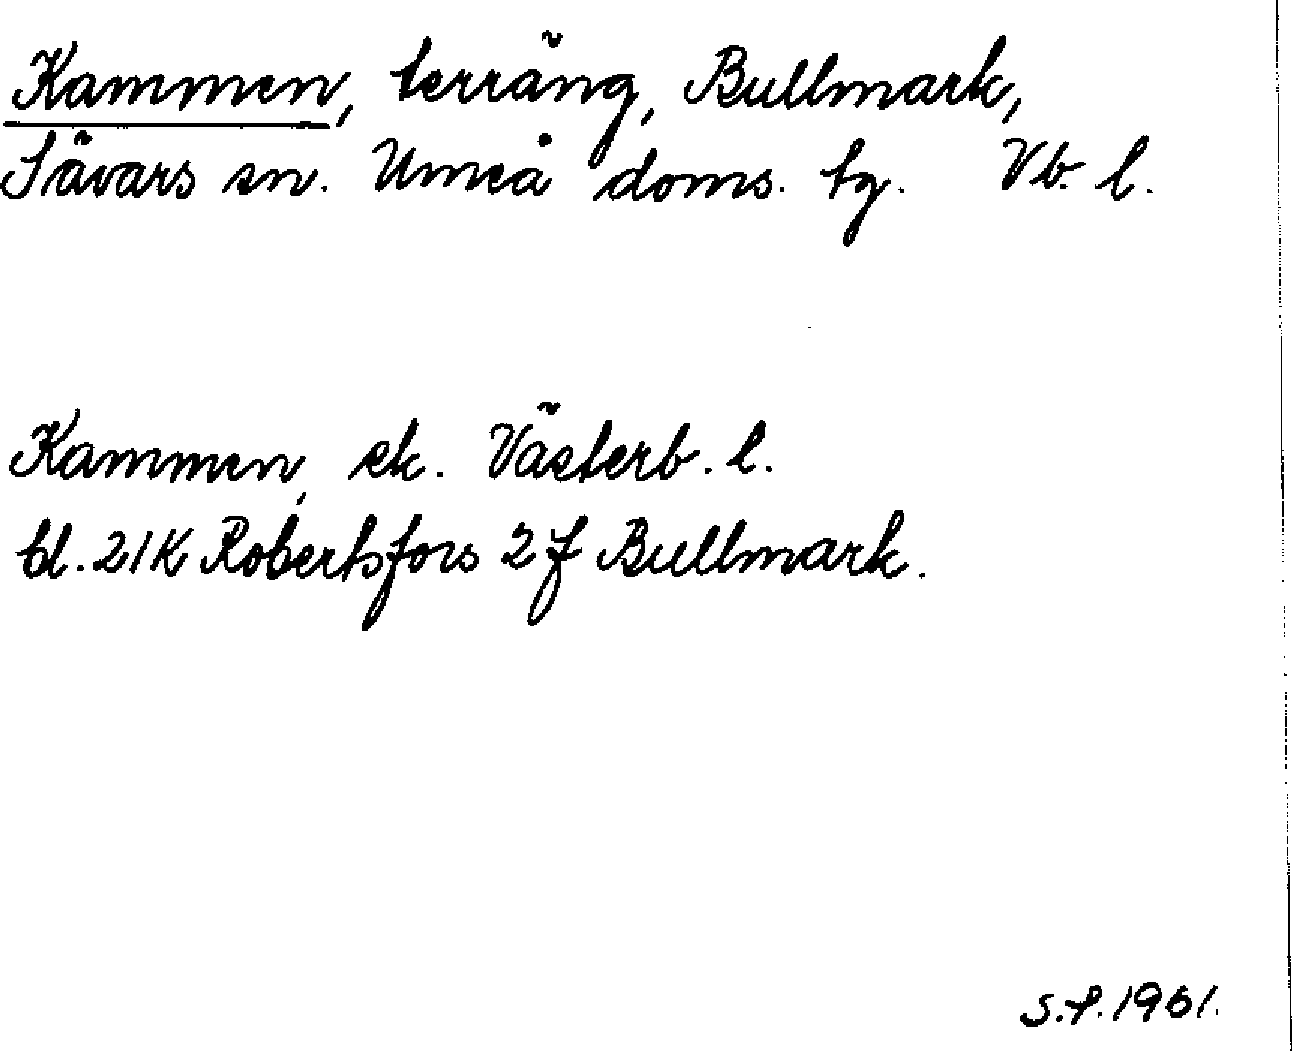 Kammen, terräng, Bullmark,
Sävars sn. Umeå doms. tg. Vb. l.
Kammen, ek. Västerb. l.
bl. 21K Robertsfors 2f Bullmark.
S.f. 1961.